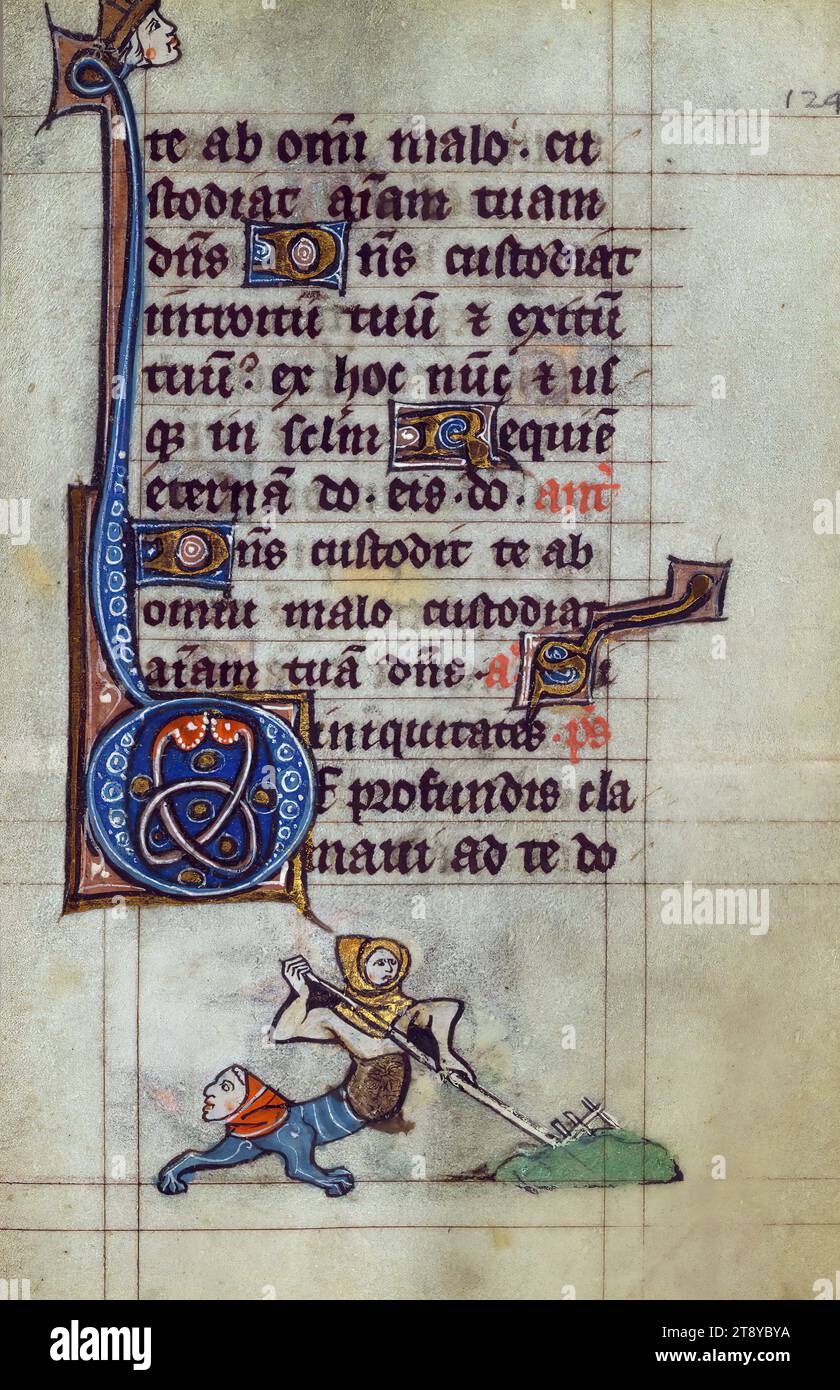 129
te ab om̄i malo · cu
stodiat aīam tuam
dn̄s Dn̄s custodiat
introitū tuū & exitū
tuū? ex hoc nūc & us
q3 in sclm̄ Requiē
eternā do · eis · do · ant̄
Dn̄s custodit te ab
omni malo custodiat
aīam tuā dn̄s · a Si
iniquitates · ps
DE profundis cla
maui ad te do
alamy
Image ID: 2T8YBYA
www.alamy.com